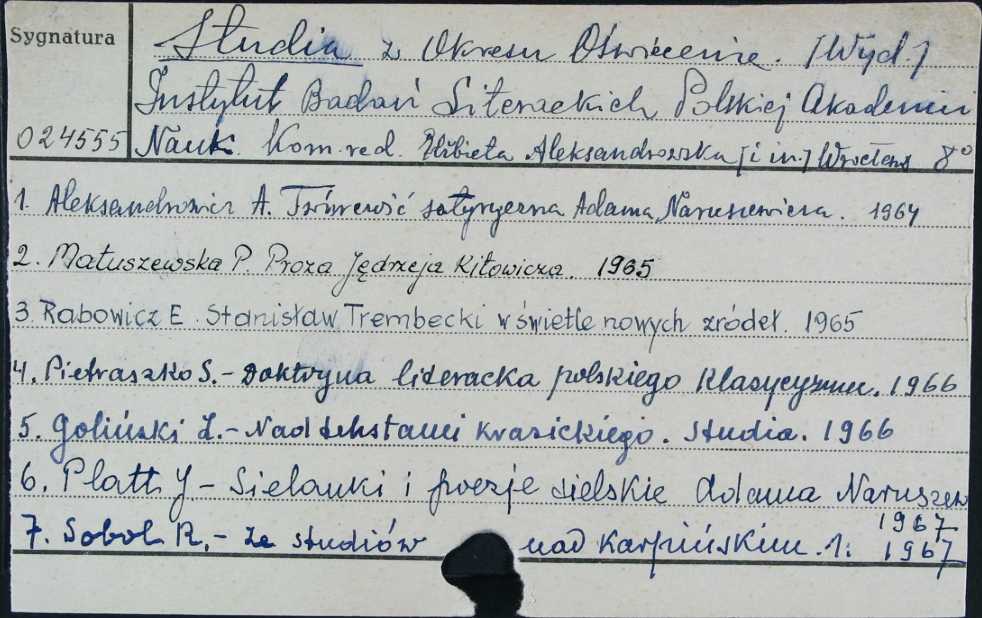 Sygnatura
Studia z Okresu Oświecenia. [Wyd.]
Instytut Badań Literackich Polskiej Akademii
024555 Nauk. Kom. red. Elżbieta Aleksandrowska [i in.] Wrocław 8°
1. Aleksandrowicz A. Twórczość satyryczna Adama Naruszewicza. 1964
2. Matuszewska P. Proza Jędrzeja Kitowicza. 1965
3. Rabowicz E. Stanisław Trembecki w świetle nowych źródeł. 1965
4. Pietraszko S. - Doktryna literacka polskiego klasycyzmu. 1966
5. Goliński Z. - Nad tekstami Krasickiego. Studia. 1966
6. Platt J - Sielanki i poezje sielskie Adama Naruszew
1967
7. Sobol R. - Ze studiów nad Karpińskim. 1: 1967